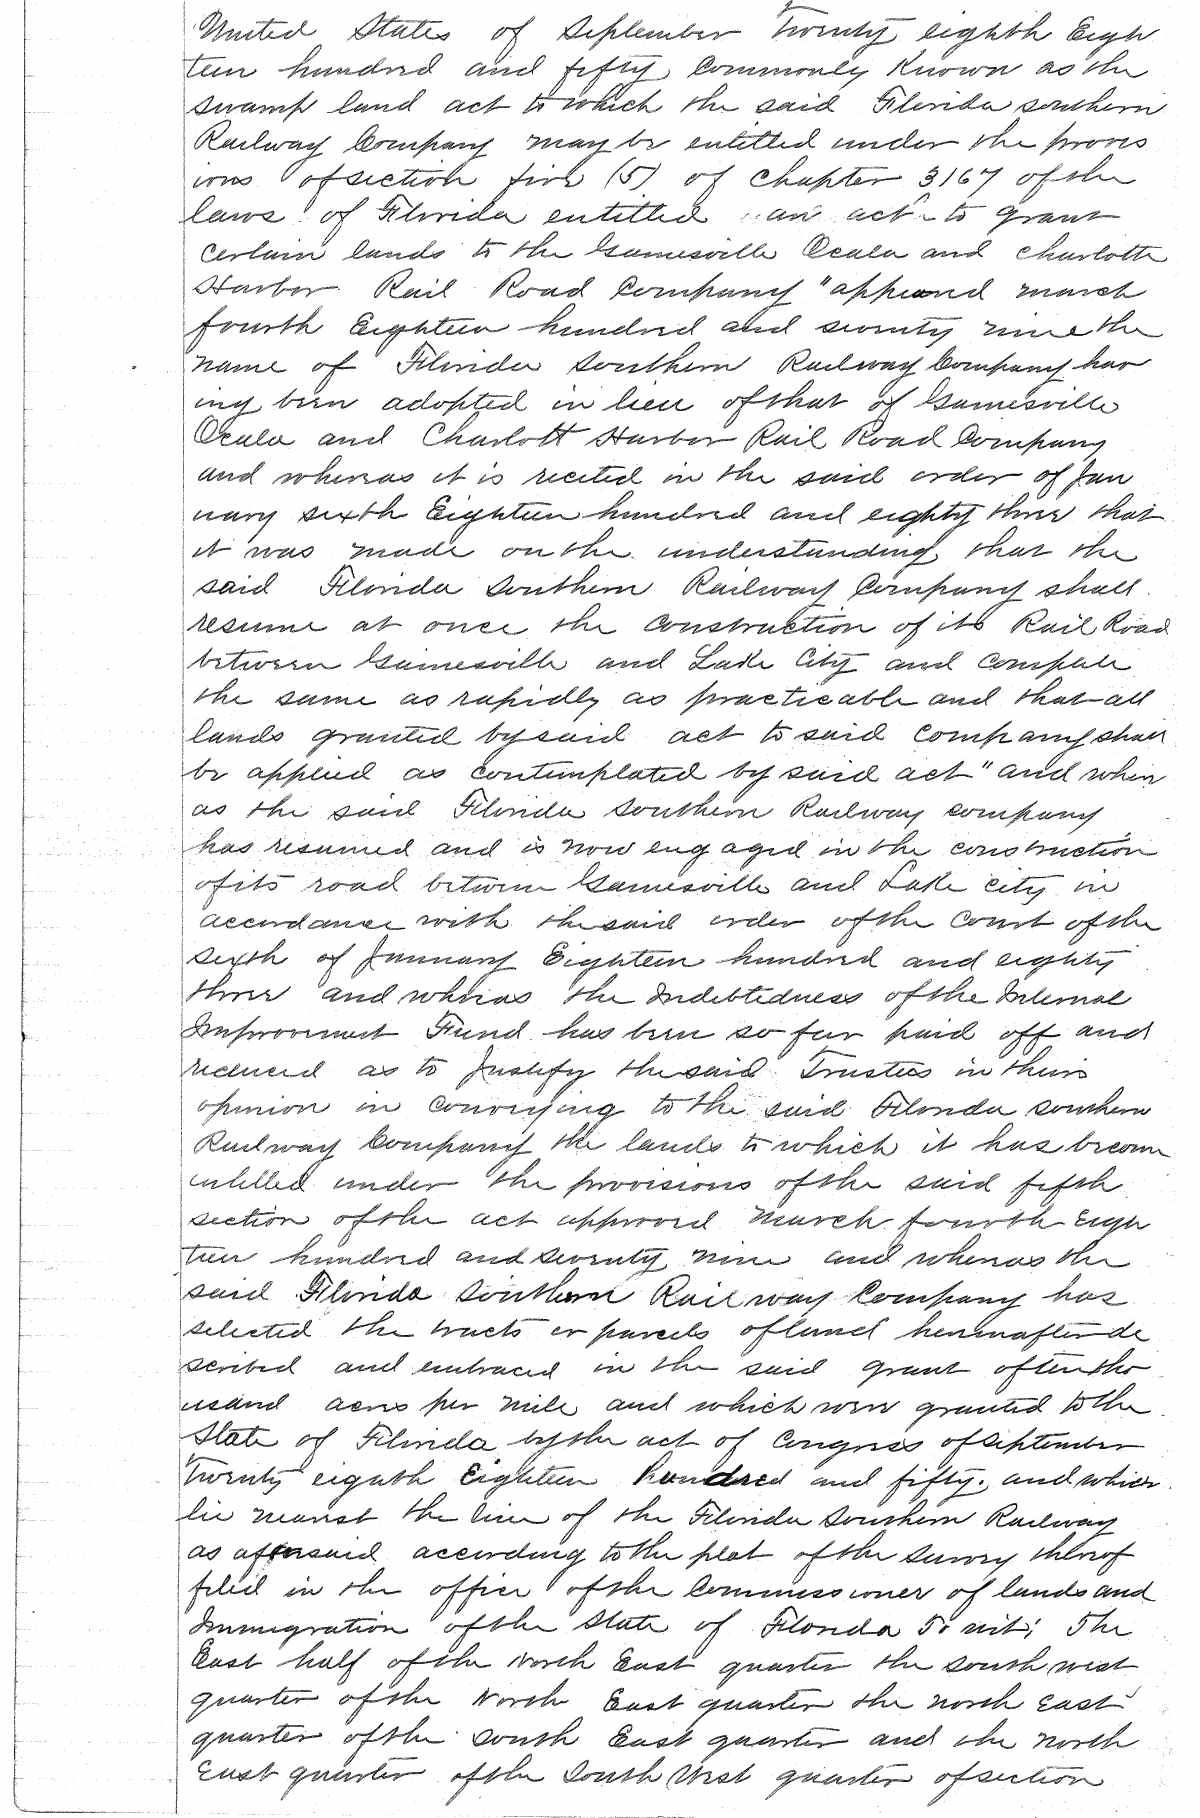 United States of September Twenty eighth Eigh
teen hundred and fifty Commonly Known as the
swamp land act to which the said Florida southern
Railway Company may be entitled under the provis
ions of section five (5) of Chapter 3167 of the
laws of Florida entitled "an act" to grant
certain lands to the Gainesville Ocala and Charlotte
Harbor Rail Road Company" approved march
fourth Eighteen hundred and seventy nine the
name of Florida Southern Railway Company hav
ing been adopted in lieu of that of Gainesville
Ocala and Charlott Harbor Rail Road Company
and whereas it is recited in the said order of Jan
uary sixth Eighteen hundred and eighty three that
it was made on the understanding that the
said Florida Southern Railway Company shall
resume at once the construction of its Rail Road
between Gainesville and Lake City and complete
the same as rapidly as practicable and that all
lands granted by said act to said Company shall
be applied as contemplated by said act" and where
as the said Florida Southern Railway company
has resumed and is now engaged in the construction
of its road between Gainesville and Lake City in
accordance with the said order of the Court of the
sixth of January Eighteen hundred and eighty
three and whereas the Indebtedness of the Internal
Improvement Fund has been so far paid off and
reduced as to Justify the said Trustees in their
opinion in conveying to the said Florida southern
Railway Company the lands to which it has become
entitled under the provisions of the said fifth
section of the act approved March fourth Eigh
teen hundred and seventy nine and whereas the
said Florida Southern Railway Company has
selected the tracts or parcels of land hereinafter de
scribed and embraced in the said grant of ten tho
usand acres per mile and which were granted to the
State of Florida by the act of Congress of September
Twenty eighth Eighteen hundred and fifty, and which
lie nearest the line of the Florida Southern Railway
as aforesaid according to the plat of the survey thereof
filed in the office of the Commissioner of lands and
Immigration of the State of Florida To wit; The
East half of the North East quarter the south west
quarter of the North East quarter the north East
quarter of the South East quarter and the north
East quarter of the South West quarter of section